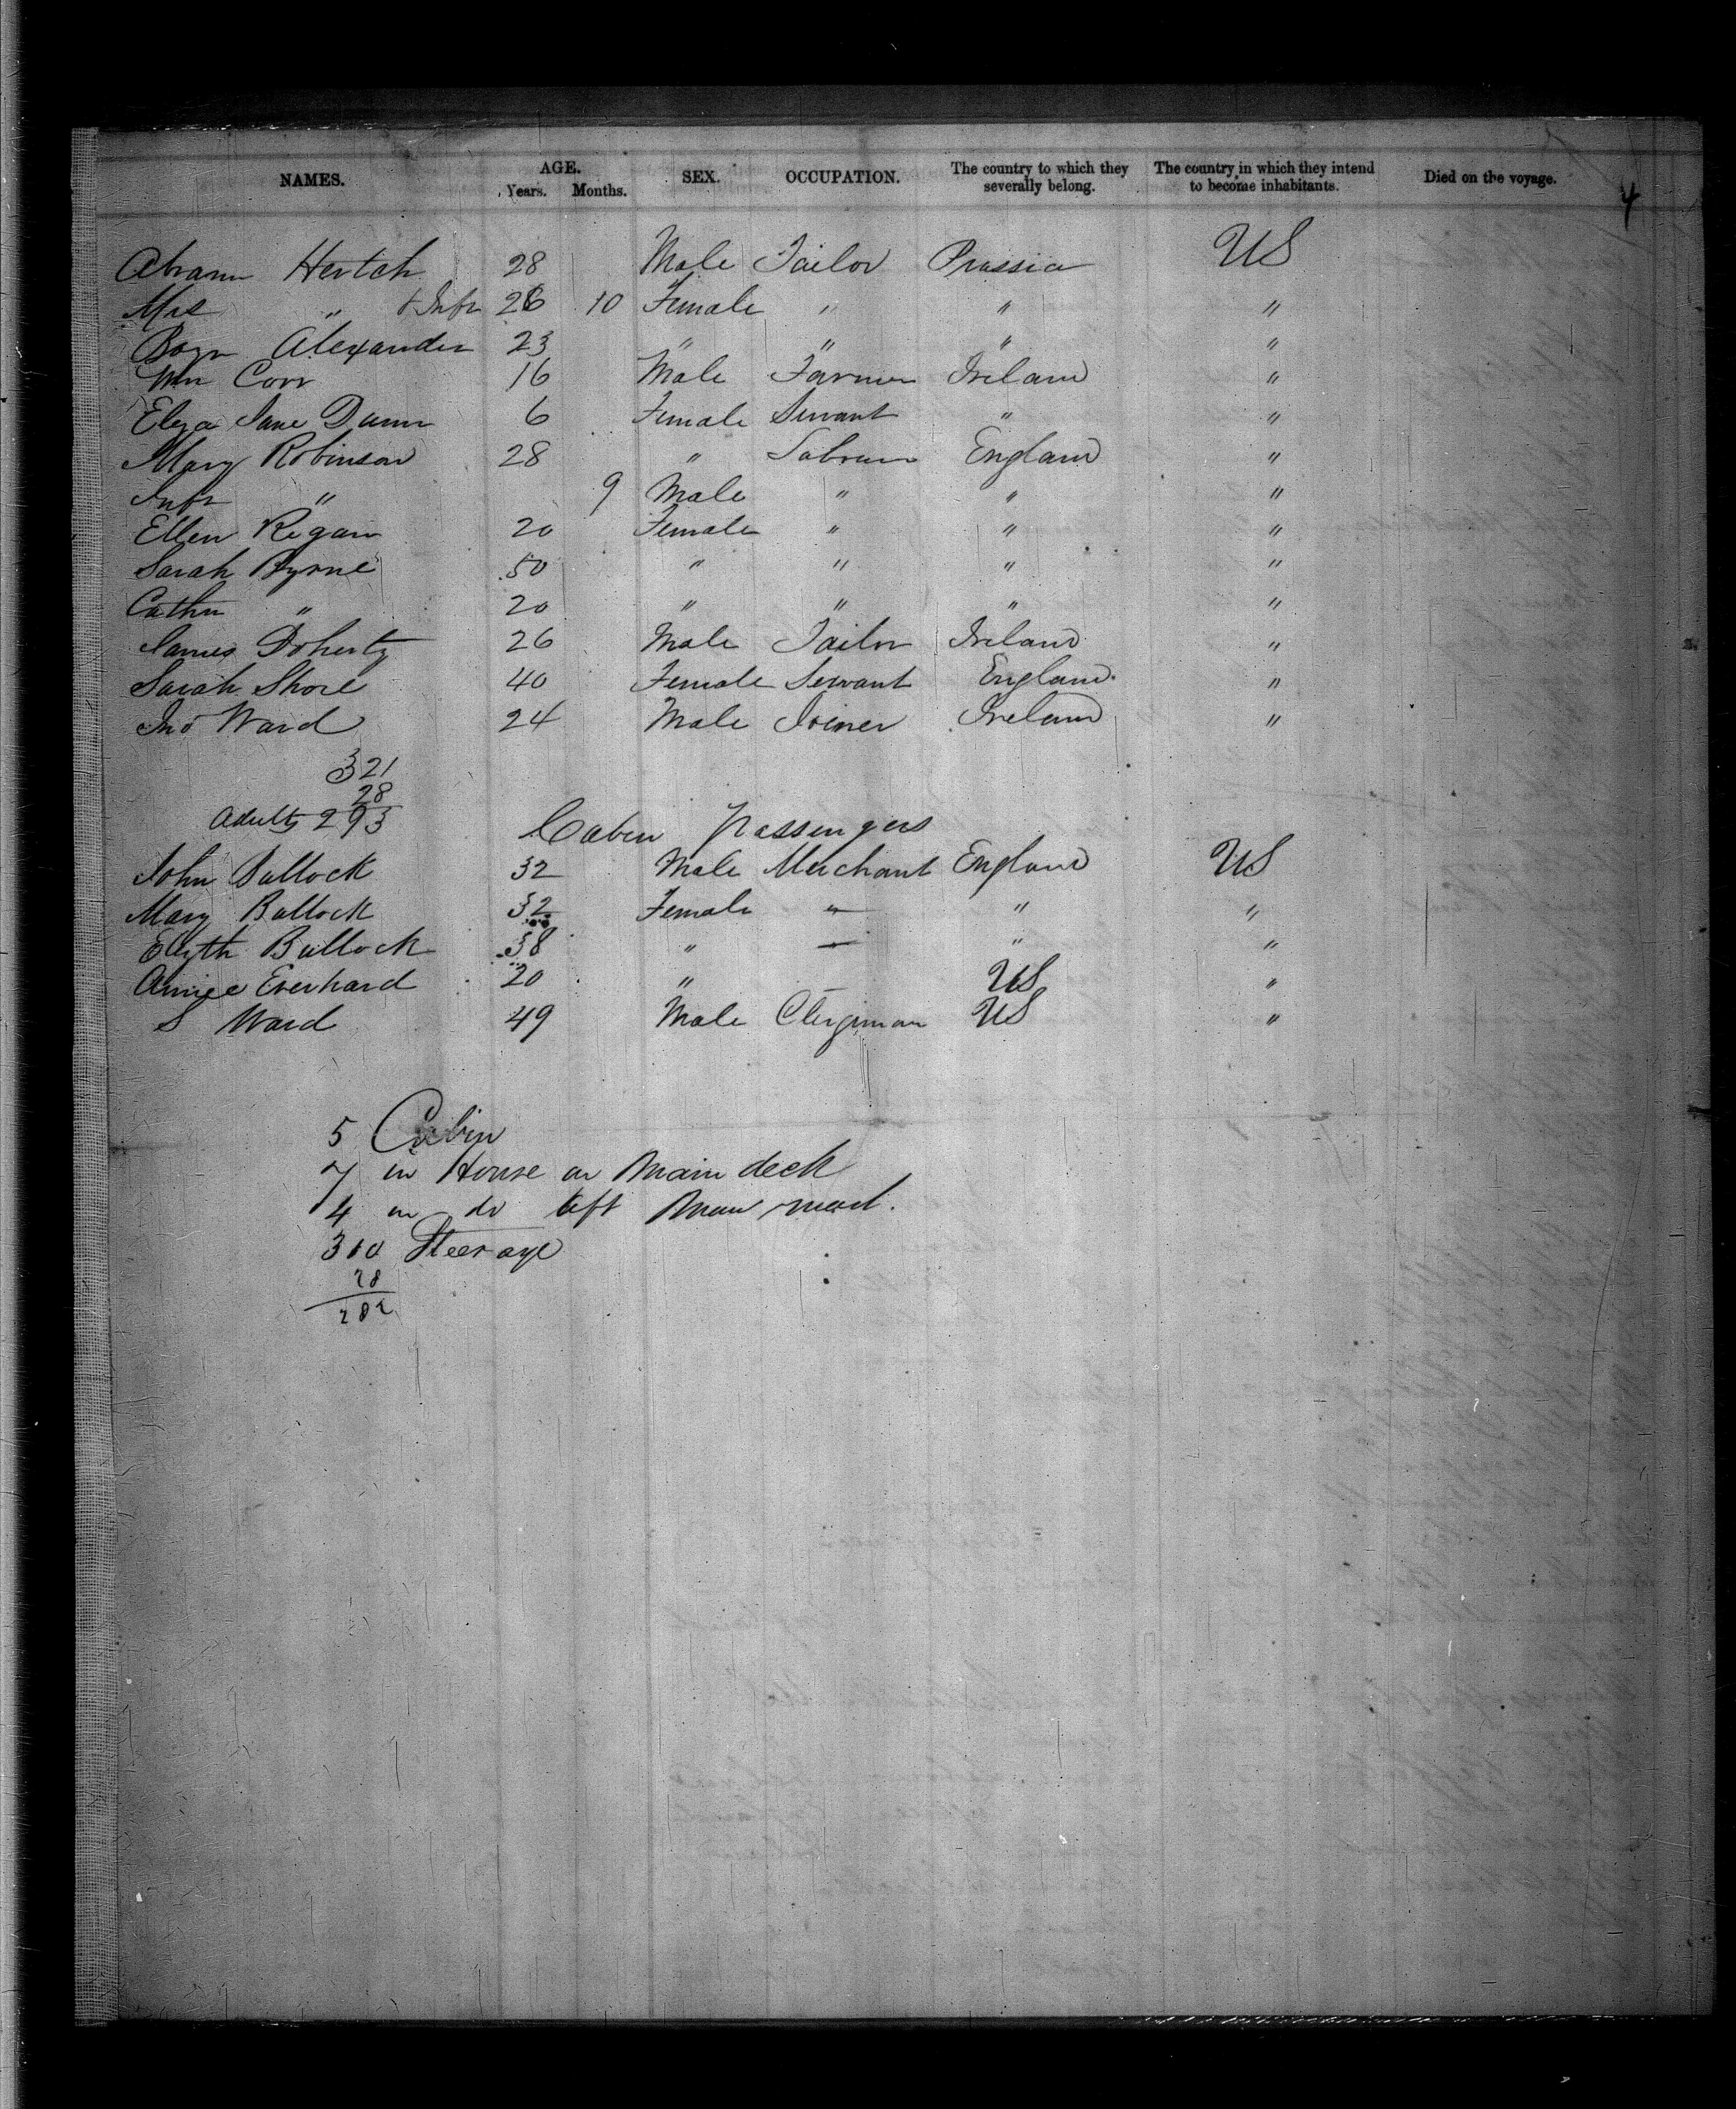 NAMES. AGE. Years. Months. SEX. OCCUPATION. The country to which they severally belong. The country in which they intend to become inhabitants. Died on the voyage. 4
Abram Hertch 28 Male Tailor Prussia US
Mrs " & Inft 26 10 Female " " "
Alexander 23 " " " "
Wm Corr 16 Male Farmer Ireland "
Eliza Jane Dunn 6 Female Servant " "
Mary Robinson 28 " England "
Inft " 9 Male " " "
Ellen Regan 20 Female " " "
Sarah Byrne 50 " " " "
Cathn " 20 " " " "
James Doherty 26 Male Tailor Ireland "
Sarah Shore 40 Female Servant England "
Jno Ward 24 Male Joiner Ireland "
321
28
Adults 293
Cabin Passengers
John Bullock 32 Male Merchant England US
Mary Bullock 32 Female " " "
Bullock 38 " — " "
Everhard 20 " — US "
S Ward 49 Male Clergiman US "
5 Cabin
7 in House on Main deck
4 in do aft Main mast.
310 Steerage
28
282